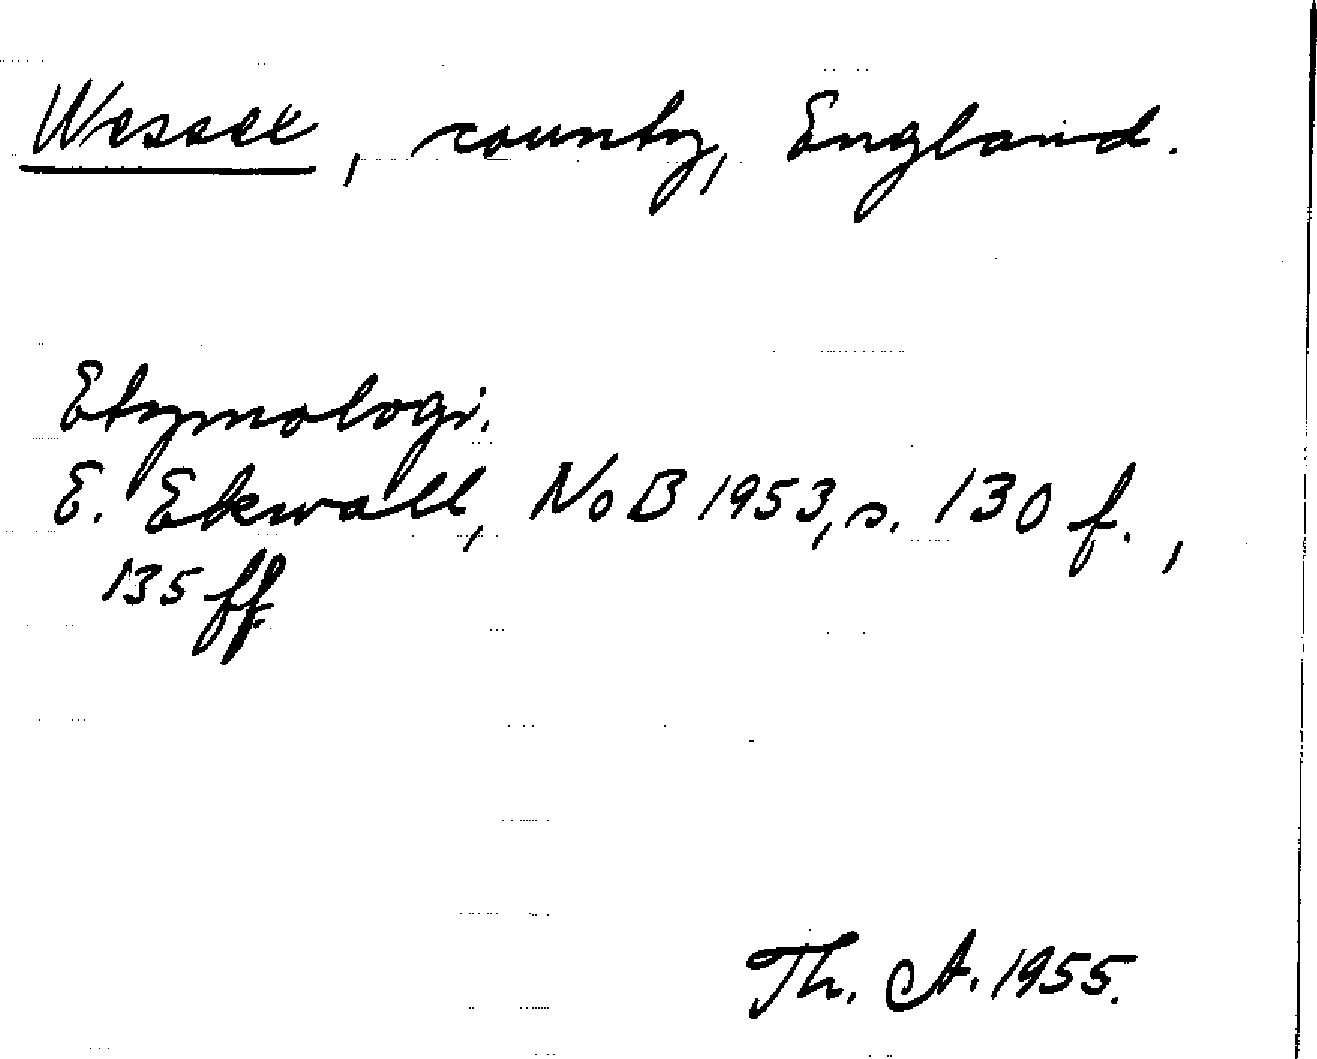 Wessex, county, England.
Etymologi.
E. Ekwall, NoB 1953, s. 130 f.,
135 ff
Th. A. 1955.